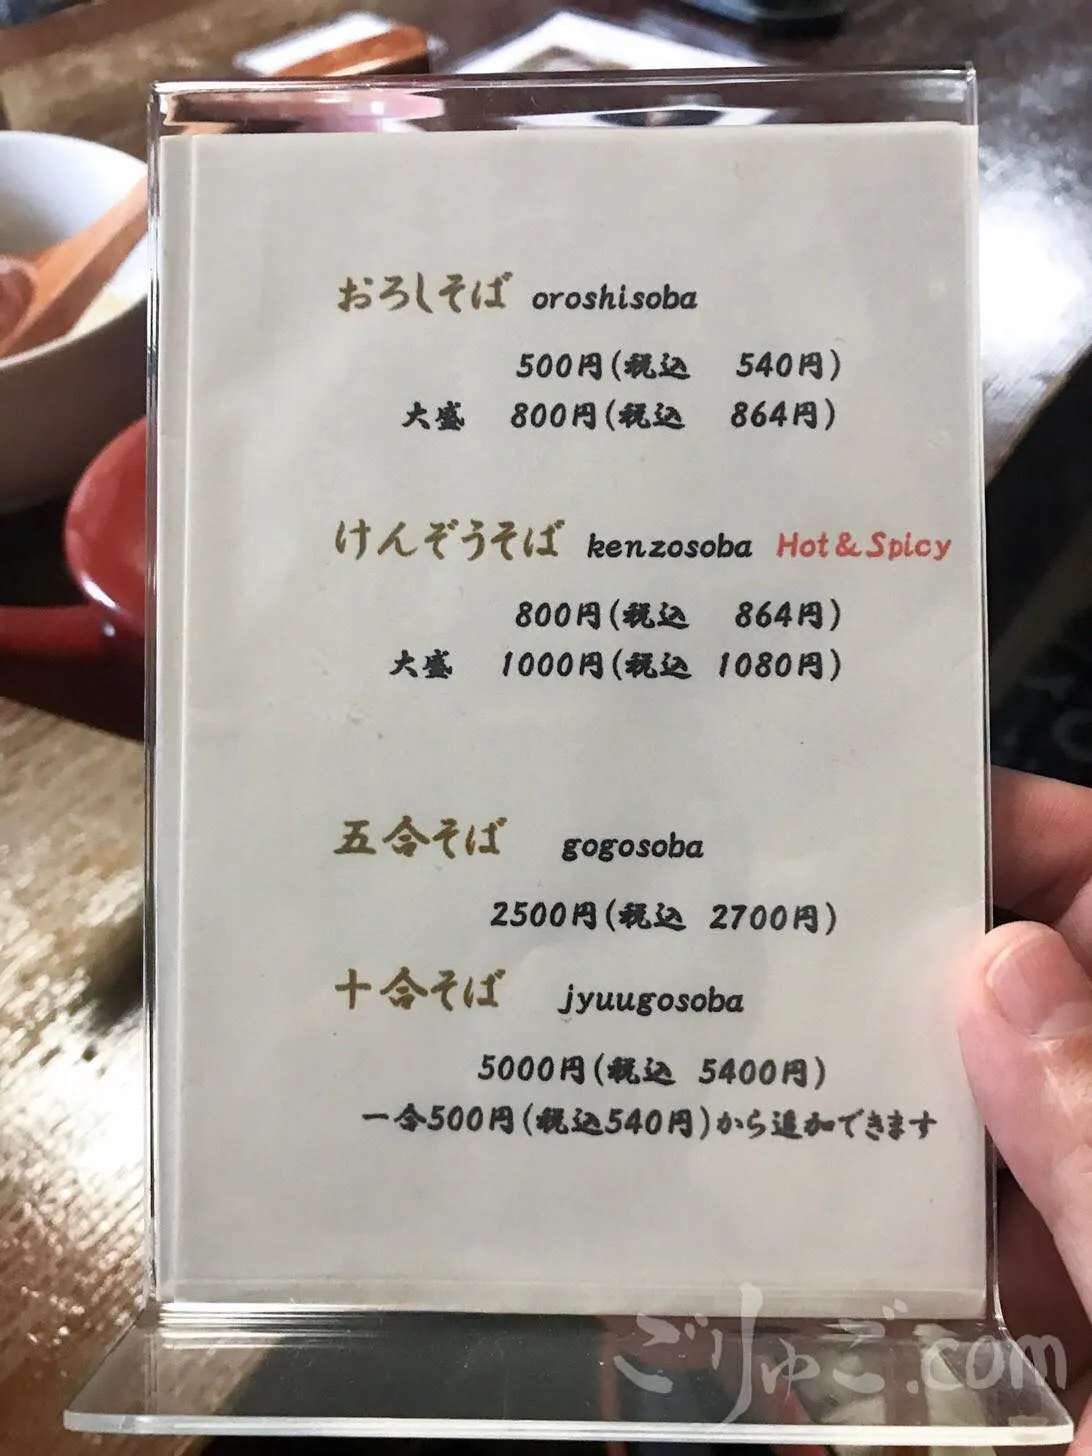 おろしそば oroshisoba
500円(税込 540円)
大盛 800円(税込 864円)
けんぞうそば kenzosoba Hot&Spicy
800円(税込 864円)
大盛 1000円(税込 1080円)
五合そば gogosoba
2500円(税込 2700円)
十合そば jyuugosoba
5000円(税込 5400円)
一合500円(税込540円)から追加できます
ごりゅご.com